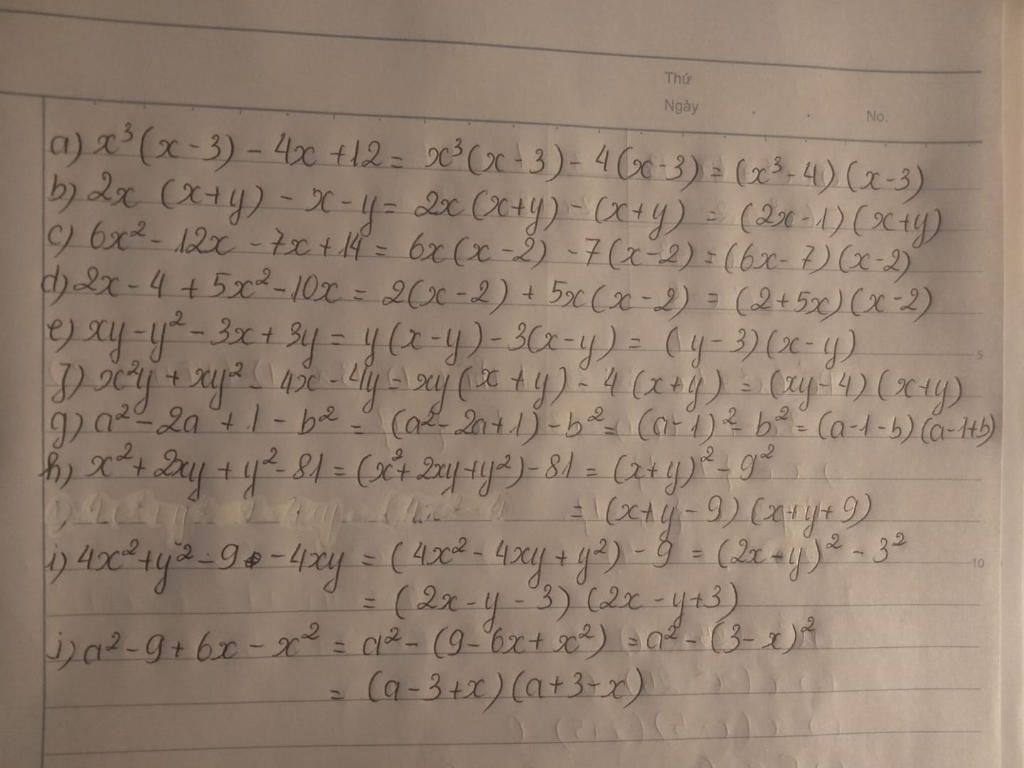 Thứ
Ngày
No.
a) x³(x - 3) - 4x + 12 = x³(x - 3) - 4(x - 3) = (x³ - 4)(x - 3)
b) 2x (x+y) - x - y = 2x(x+y) - (x+y) = (2x - 1)(x+y)
c) 6x² - 12x - 7x + 14 = 6x(x - 2) - 7(x - 2) = (6x - 7)(x - 2)
d) 2x - 4 + 5x² - 10x = 2(x - 2) + 5x(x - 2) = (2 + 5x)(x - 2)
e) xy - y² - 3x + 3y = y(x - y) - 3(x - y) = (y - 3)(x - y)
5
f) x²y + xy² - 4x - 4y = xy(x + y) - 4(x + y) = (xy - 4)(x + y)
g) a² - 2a + 1 - b² = (a² - 2a + 1) - b² = (a - 1)² - b² = (a - 1 - b)(a - 1 + b)
h) x² + 2xy + y² - 81 = (x² + 2xy + y²) - 81 = (x + y)² - 9²
= (x + y - 9)(x + y + 9)
i) 4x² + y² - 9 - 4xy = (4x² - 4xy + y²) - 9 = (2x - y)² - 3²
10
= (2x - y - 3)(2x - y + 3)
j) a² - 9 + 6x - x² = a² - (9 - 6x + x²) = a² - (3 - x)²
= (a - 3 + x)(a + 3 - x)